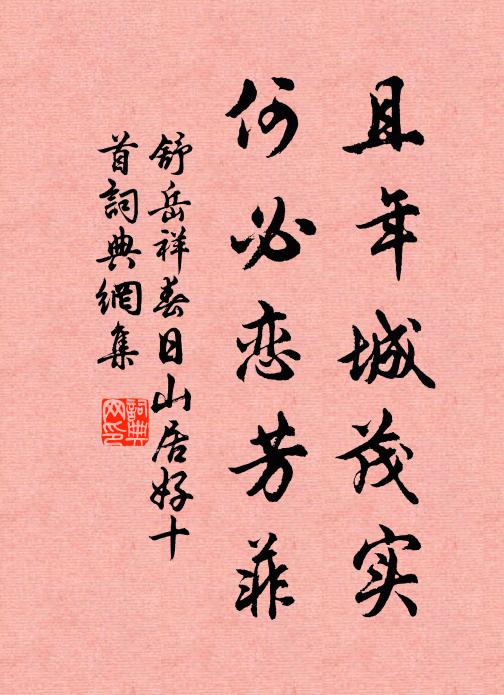 且年城茂实
何必恋芳菲
舒岳祥春日山居好十
首詞典網集
詞典
网印